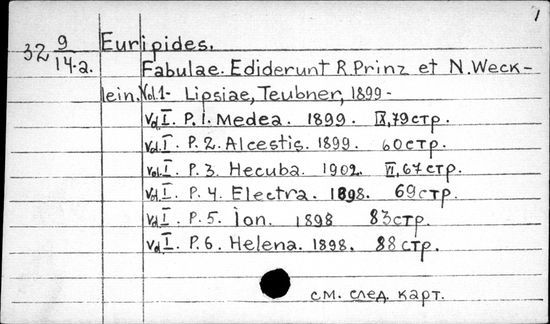 1
32 9/14.a. Euripides.
Fabulae. Ediderunt R.Prinz et N.Weck-
lein. Vol.1- Lipsiae, Teubner, 1899-
Vol.I. P.1. Medea. 1899. IX,79 стр.
Vol.I. P.2. Alcestis. 1899. 60 стр.
Vol.I. P.3. Hecuba. 1902. VI,67 стр.
Vol.I. P.4. Electra. 1898. 69 стр.
Vol.I. P.5. Ion. 1898 83 стр.
Vol.I. P.6. Helena. 1898. 88 стр.
см. след. карт.